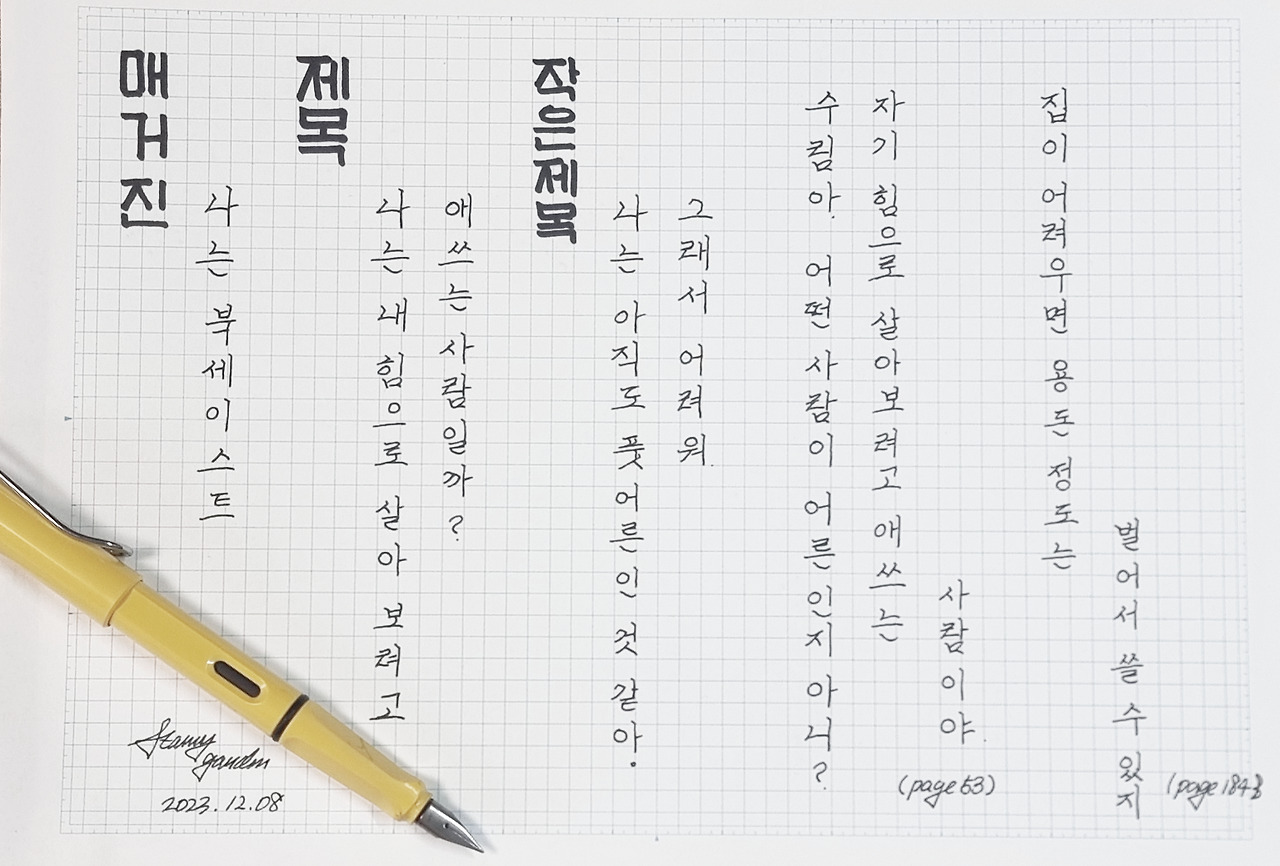 매거진
나는 북세이스트
제목
나는 내 힘으로 살아 보려고
애쓰는 사람일까?
작은제목
나는 아직도 풋어른인 것 같아.
그래서 어려워.
수림아. 어떤 사람이 어른인지 아니?
자기 힘으로 살아보려고 애쓰는
사람이야.
(page 53)
집이 어려우면 용돈 정도는
벌어서 쓸 수 있지
(page 184)
2023.12.08